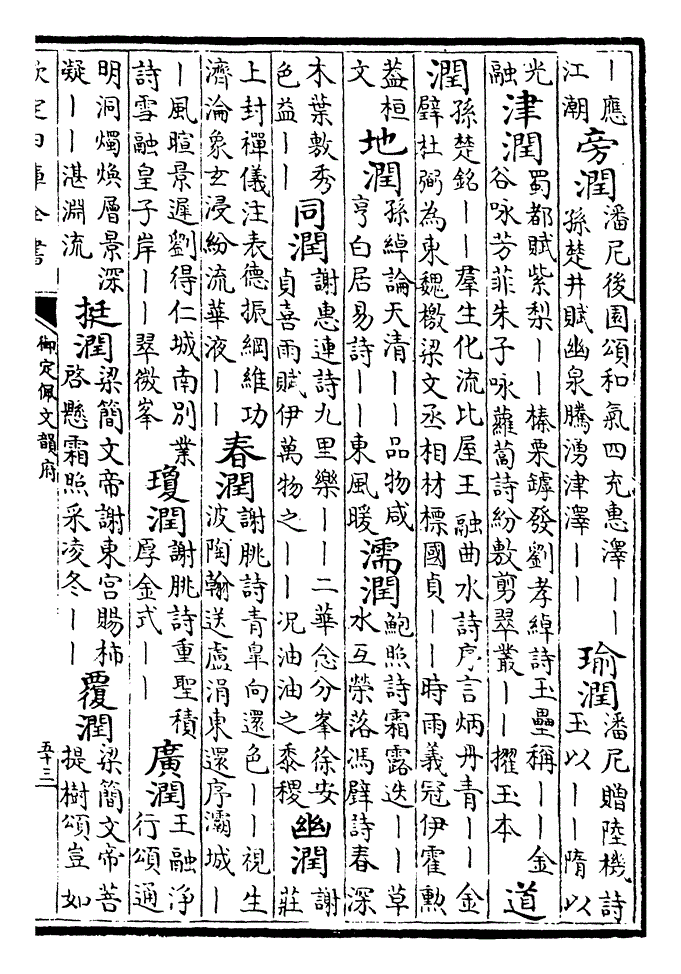 ｜應
江潮
旁潤
潘尼後園頌和氣四充惠澤｜｜
孫楚井賦幽泉騰湧津澤｜｜
瑜潤
潘尼贈陸機詩
玉以｜｜隋以
光
融
津潤
蜀都賦紫梨｜｜榛栗罅發劉孝綽詩玉壘稱｜｜金
谷咏芳菲朱子咏蘿蔔詩紛敷剪翠叢｜｜擢玉本
道
潤
孫楚銘｜｜羣生化流比屋王融曲水詩序言炳丹青｜｜金
壁杜弼為東魏檄梁文丞相材標國貞｜｜時雨義冠伊霍勲
蓋桓
文
地潤
孫綽論天清｜｜品物咸
亨白居易詩｜｜東風暖
濡潤
鮑照詩霜露迭｜｜草
水互榮落馮壁詩春深
木葉敷秀
色益｜｜
同潤
謝惠連詩九里樂｜｜二華念分峯徐安
貞喜雨賦伊萬物之｜｜況油油之黍稷
幽潤
謝
莊
上封禪儀注表德振綱維功
濟淪象玄浸紛流華液｜｜
春潤
謝朓詩青臯向還色｜｜視生
波陶翰送盧涓東還序灞城｜
｜風暄景遲劉得仁城南別業
詩雪融皇子岸｜｜翠微峯
瓊潤
謝朓詩重聖積
厚金式｜｜
廣潤
王融淨
行頌通
明洞燭煥層景深
凝｜｜湛淵流
挺潤
梁簡文帝謝東宫賜柿
啓懸霜照采凌冬｜｜
覆潤
梁簡文帝菩
提樹頌豈如
欽定四庫全書
御定佩文韻府
五十三